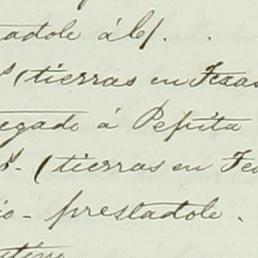 tadole á
(tierras en Texas
egado á Pepita
(tierras en Te
prestadole.